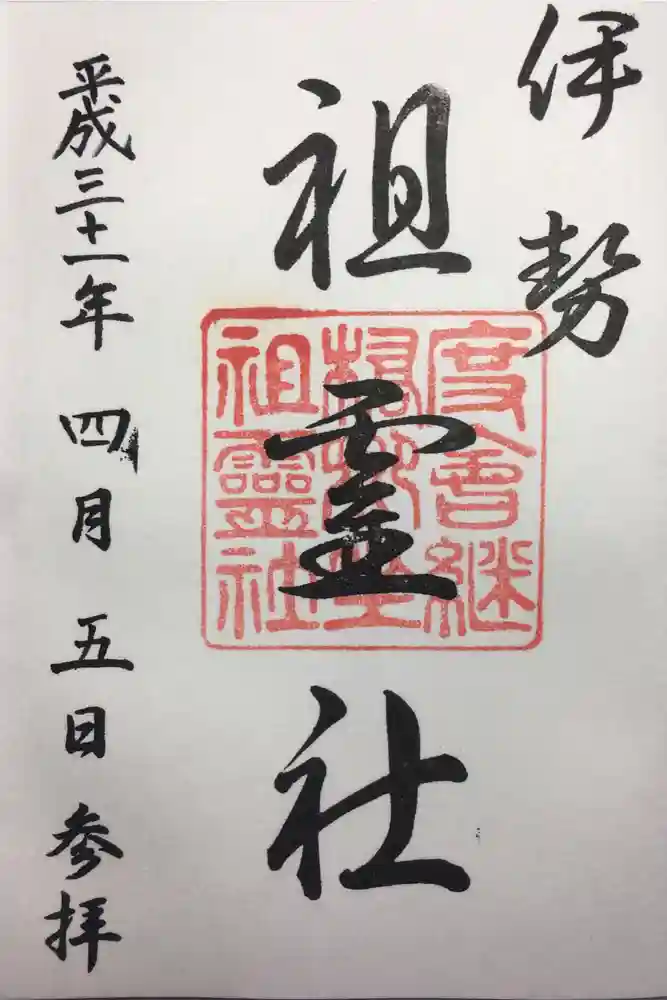 伊勢
祖霊社
平成三十一年四月五日参拝
度會継
祖靈社